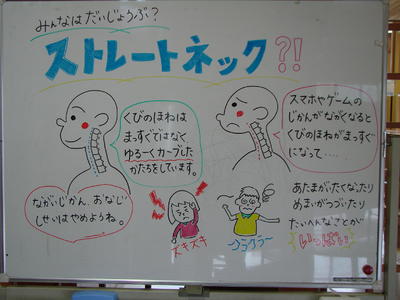 みんなはだいじょうぶ?
ストレートネック?!
くびのほねは
まっすぐではなく
ゆる〜くカーブした
かたちをしています。
スマホやゲームの
じかんがながくなると
くびのほねがまっすぐ
になって・・・・
ながいじかん、おなじ
しせいはやめようね。
あたまがいたくなったり
めまいがつづいたり
たいへんなことが
いっぱい
ズキズキ
クラクラ〜